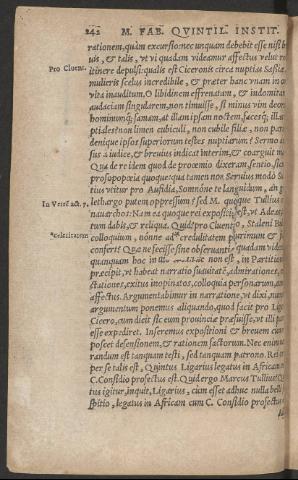 242 M. FAB. QVINTIL. INSTIT.
rationem, quàm excursio: nec unquam debebit esse nisi
uis, & talis, vt vi quadam videamur affectus velut re
Pro Cluent.
itinere depulsi: qualis est Ciceronis circa nuptias Sasiæ.
mulieris scelus incredibile, & præter hanc vnam in
vita inauditum. O libidinem effrenatam, & indomitam
audaciam singularem, non timuisse, si minus vim deor
hominumq́; famam, at illam ipsam noctem, facesq́; illas
ptiales: non limen cubiculi, non cubile filiæ, non pari
denique ipsos superiorum testes nuptiarum? Sermo
sus à iudice, & breuius indicat interim, & coarguit
Qua de re idem quod de proœmio dixeram, sentio, sicut
prosopopœia: quoque qua tamen non Seruius modò Su
tius vitur pro Aufidia, Somnóne te languidum, an
In Verré act. 7.
lethargo putem oppressum? sed M. quoque Tullius
nauarchos: Nam ea quoque rei expositio est, vt Ade
tum dabis, & reliqua. Quid? pro Cluentio, Staleni Bul
*celeritatem
colloquium, nónne ad* credulitatem plurimum &
confert? Quæ ne fecisse sine obseruatione quadam videa
quanquam hoc in illo non est, in Partitione
præcipit, vt habeat narratio suauitatē, admirationes,
ctationes, exitus inopinatos, colloquia personarum,
affectus. Argumentabimur in narratione, vt dixi, nun
argumentum ponemus aliquando, quod facit pro Li
Cicero, cum dicit sic eum prouinciæ præfuisse, vt illi
esse expediret. Inseremus expositioni & breuem cum
poscet defensionem, & rationem factorum. Nec enim
randum est tanquam testi, sed tanquam patrono. Rei or
per se talis est, Quintus Ligarius legatus in Africam
C. Considio profectus est. Quid ergo Marcus Tullius?
tus igitur, inquit, Ligarius, cùm esset adhuc nulla belli
spitio, legatus in Africam cum C. Considio profectus